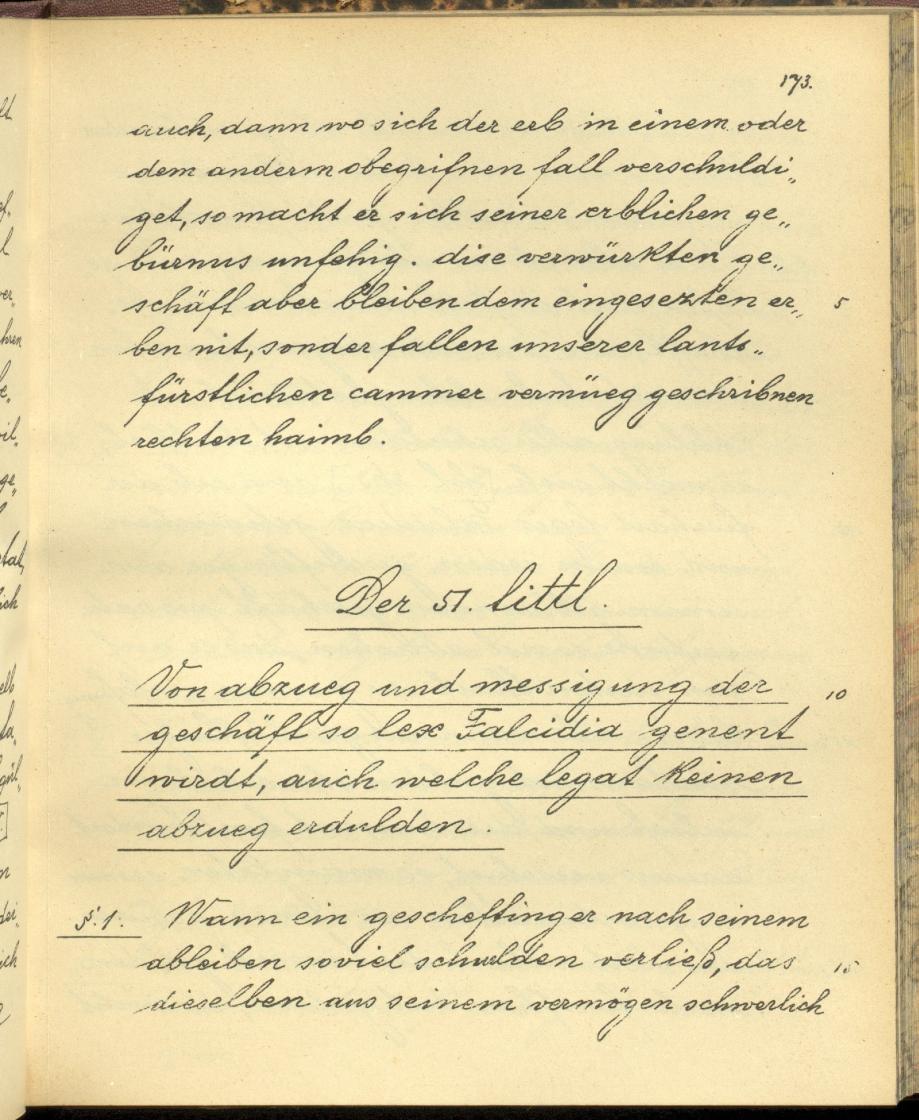 173.
auch, dann wo sich der erb in einem oder
dem anderm obegrifnen fall verschuldi„
get, so macht er sich seiner erblichen ge„
bürnus unfehig. dise verwürkten ge„
schäft aber bleiben dem eingesezten er„ 5
ben nit, sonder fallen unserer lants„
fürstlichen cammer vermüeg geschribnen
rechten haimb.
Der 51. tittl.
Von abzueg und messigung der 10
geschäft so lex Falcidia genent
wirdt, auch welche legat keinen
abzueg erdulden.
§. 1. Wann ein gescheftinger nach seinem
ableiben soviel schulden verließ, das 15
dieselben aus seinem vermögen schwerlich